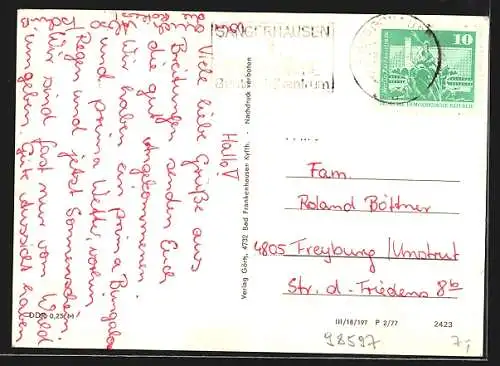 Hallo!
Viele liebe Grüße aus
Breitungen senden Euch
die gut Angekommenen.
Wir haben ein prima Bungalow
und prima Wetter, vorhin
Regen und jetzt Sonnenschein.
Wir sind fast nur vom Wald
umgeben. Gute Aussicht haben
DDR 0,25 M
Verlag Görn, 4732 Bad Frankenhausen Kyffh. · Nachdruck verboten
SANGERHAUSEN
10
DEUTSCHE DEMOKRATISCHE REPUBLIK
Fam.
Roland Böttner
4805 Freyburg/Unstrut
Str. d. Friedens 8b
III/18/197 P 2/77 2423
98597